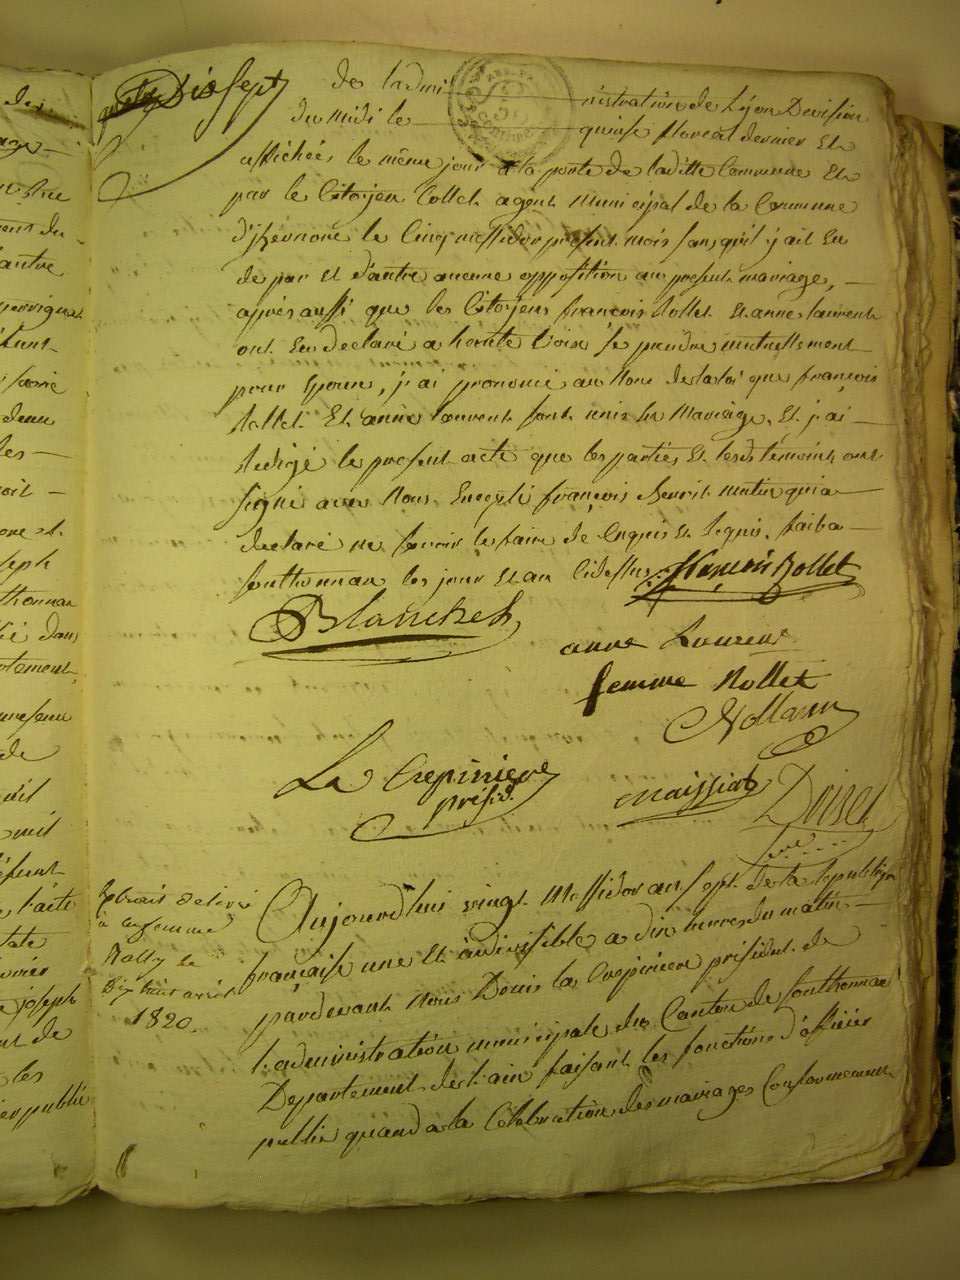 Dix Sept
de l'administration de Lyon Division
du midi le quinze floreal dernier Et
affichées le même jour a la porte de laditte Commune Et
par le Citoyen Collet agent municipal de la Commune
le Cinq messidor present mois sans qu'il y ait Eu
de par Et d'autre aucune opposition au present mariage,
après aussi que les Citoyens françois Rollet Et anne laurent
ont Eu declaré a haute voix se prendre mutuellement
pour Epoux, j'ai prononcé au Nom de la loi que françois
Rollet Et anne laurent sont unis En Mariage, Et j'ai
Redigé le present acte que les parties Et lesds témoins ont
signé avec Nous Excepté françois qui a
declaré ne savoir le faire de Enquis Et Requis, fait a
Sonthonnax les jour Et an Cidessus
françois Rollet
Blanchet
anne Laurent
femme Rollet
La Crepiniere
présid.
maissiat
Extrait delivré
a
le
Dix huit avril
1820.
Aujourd'hui vingt Messidor an sept de la République
française une Et indivisible a dix heures du matin
pardevant Nous Denis la Crepiniere président de
l'administration municipale du Canton de Sonthonnax
Departement de l'ain faisant les fonctions d'officier
public quand a la Celebration des mariages Conformement